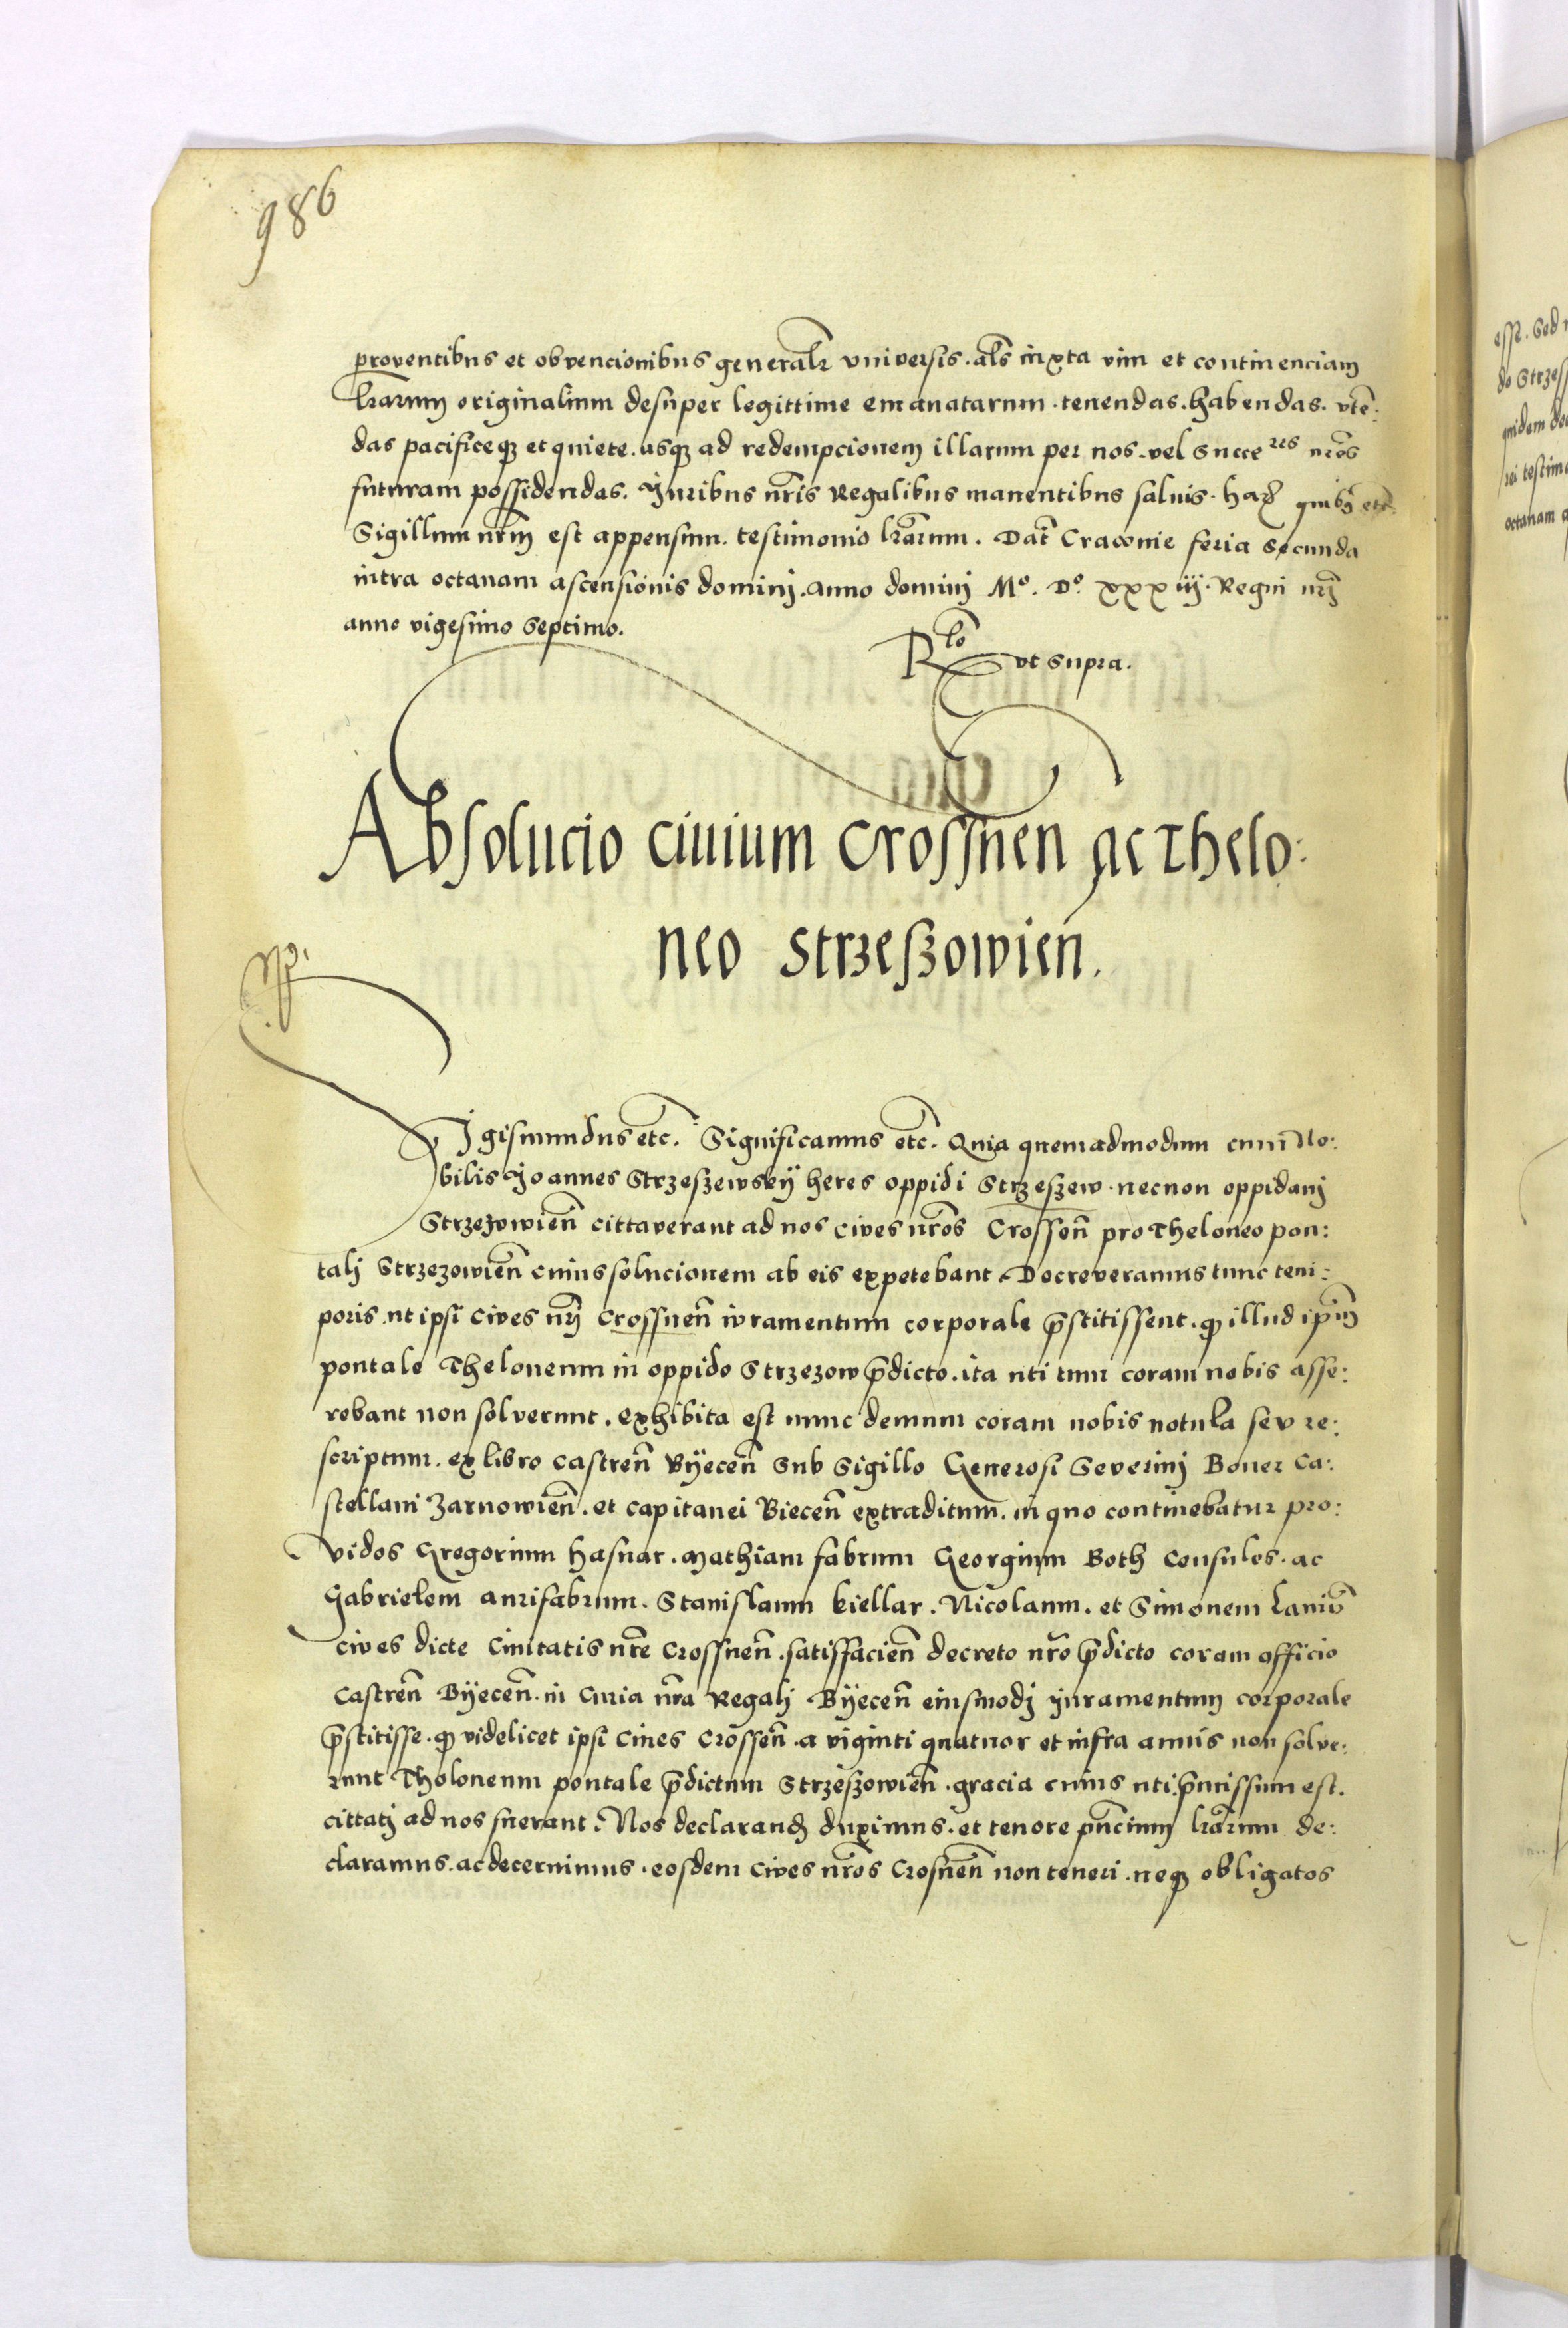 986
proventibus et obvencionibus generalr universis. als iuxta vim et continenciam
lrarum originalium desuper legittime emanatarum. tenendas. habendas. utē:
das pacificeqȝ et quiete. usqȝ ad redempcionem illarum per nos. vel succeres nrōs
futuram possidendas. Juribus nrīs Regalibus manentibus salvis. harȝ quibȝ etc̄.
Sigillum nrm̄ est appensum. testimonio lrārum. Dat̄ Cracovie feria secunda
intra octavam ascensionis dominj. anno dominj Mº. Dº xxxiij. Regni nrj̄
anno vigesimo Septimo.
Rlō ut supra.
Absolucio civium Crossnen̄ ac Thelo:
neo Strzeszowien̄.
Sigismundus etc̄. Significamus etc̄. Quia quemadmodum cum No:
bilis Joannes Strzeszewskÿ heres oppidi Strzeszew. necnon oppidanj
Strzezowien̄ cittaverant ad nos cives nrōs Crossen̄ pro Theloneo pon:
talj Strzezowien̄ cuius solucionem ab eis expetebant. Decreveramus tunc tem:
poris. ut ipsi cives nrj̄ Crossnen̄ iuramentum corporale p̄stitissent. qȝ illud ipm̄
pontale Theloneum in oppido Strzezow p̄dicto. ita uti tum coram nobis asse:
rebant non solverunt. exhibita est nunc demum coram nobis notula sev re:
scriptum. ex libro castren̄ Bÿecen̄ sub Sigillo Generosi Severinj Boner Ca:
stellani Zarnowien̄. et capitanei Biecen̄ extraditum. in quo continebatur pro:
vidos Gregorium Hasnar. Mathiam fabrum Georgium Both Consules. ac
Gabrielem aurifabrum. Stanislaum kiellar. Nicolaum. et Simonem Laniū
cives dicte Civitatis nrē Crossnen̄. satisfacien̄ decreto nrō p̄dicto coram officio
Castren̄ Bÿecen̄. in Curia nrā Regalj Bÿecen̄ eiusmodj iuramentum corporale
p̄stitisse. qȝ videlicet ipsi Cives Crossen̄. a viginti quatuor et infra annis non solve:
runt Tholoneum pontale p̄dictum Strzeszowien̄. gracia cuius uti p̄missum est.
cittatj ad nos fuerant. Nos declarandȝ duximus. et tenore pn̄cium lrārum de:
claramus. ac decernimus. eosdem cives nrōs Crosnen̄ non teneri. neqȝ obligatos